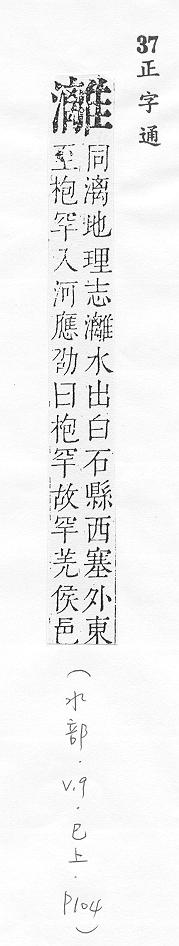 37正字通
灕
同漓地理志灕水出白石縣西塞外東
至枹罕入河應劭曰枹罕故罕羌侯邑
(水部.V.9.巳上.P104)